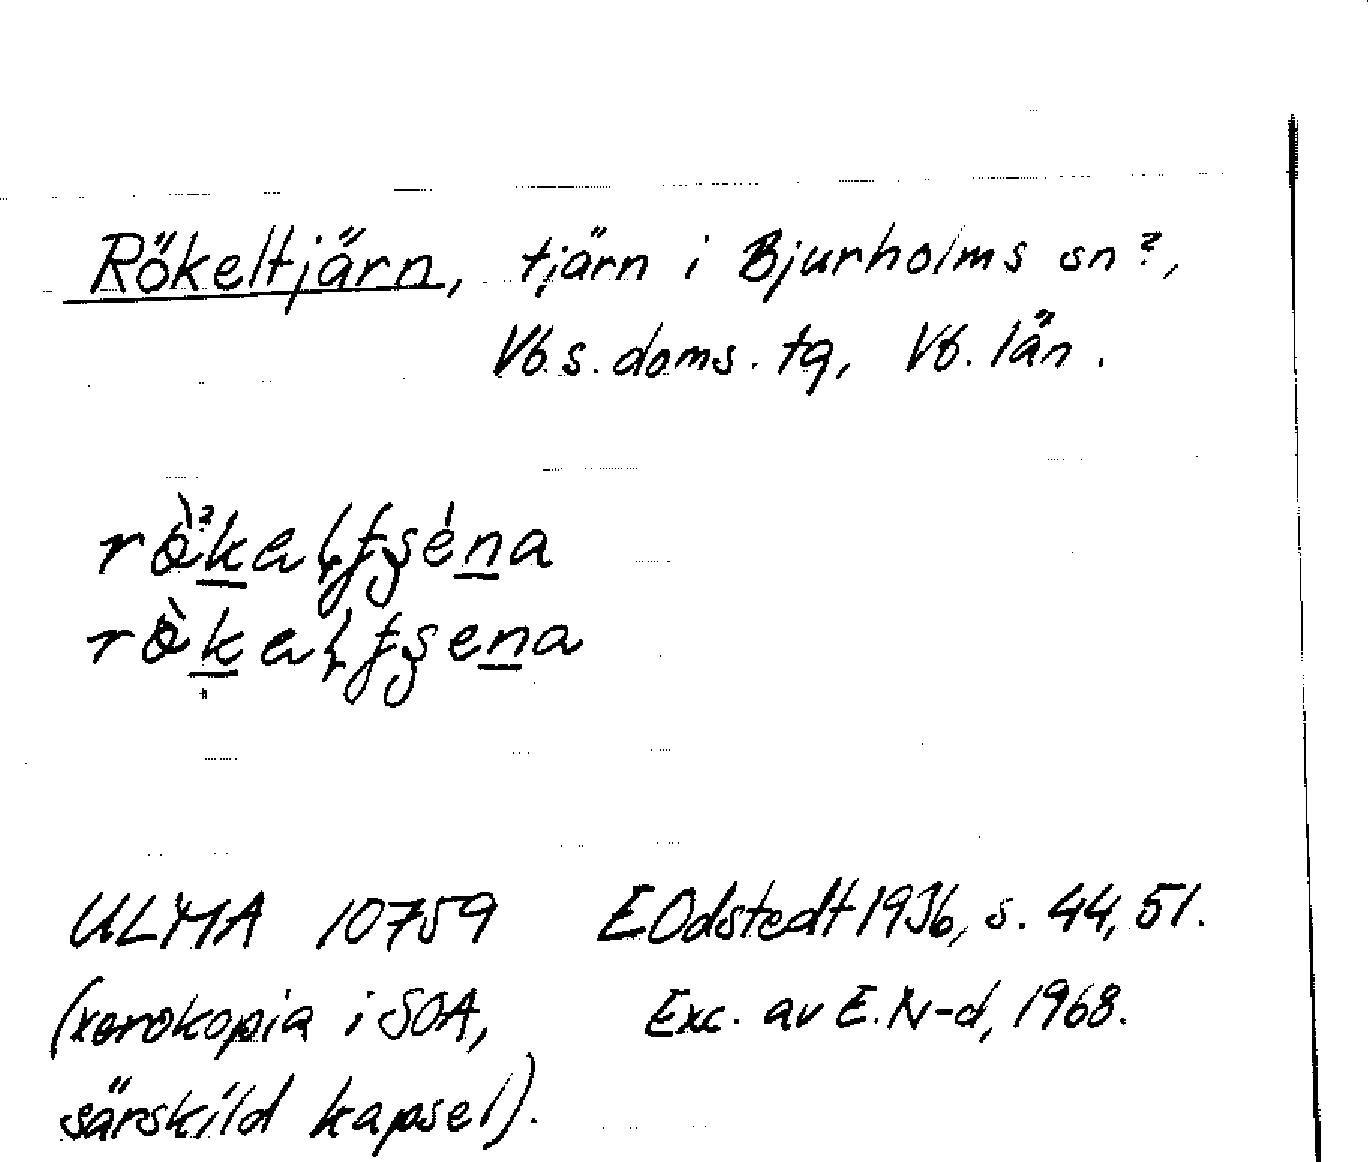 Rökeltjärn, tjärn i Bjurholms sn?,
Vb.s. doms. tg, Vb. län.
ULMA 10759 E Odstedt 1936, s. 44, 51.
(xerokopia i SOA, Exc. av E. N-d, 1968.
särskild kapsel).